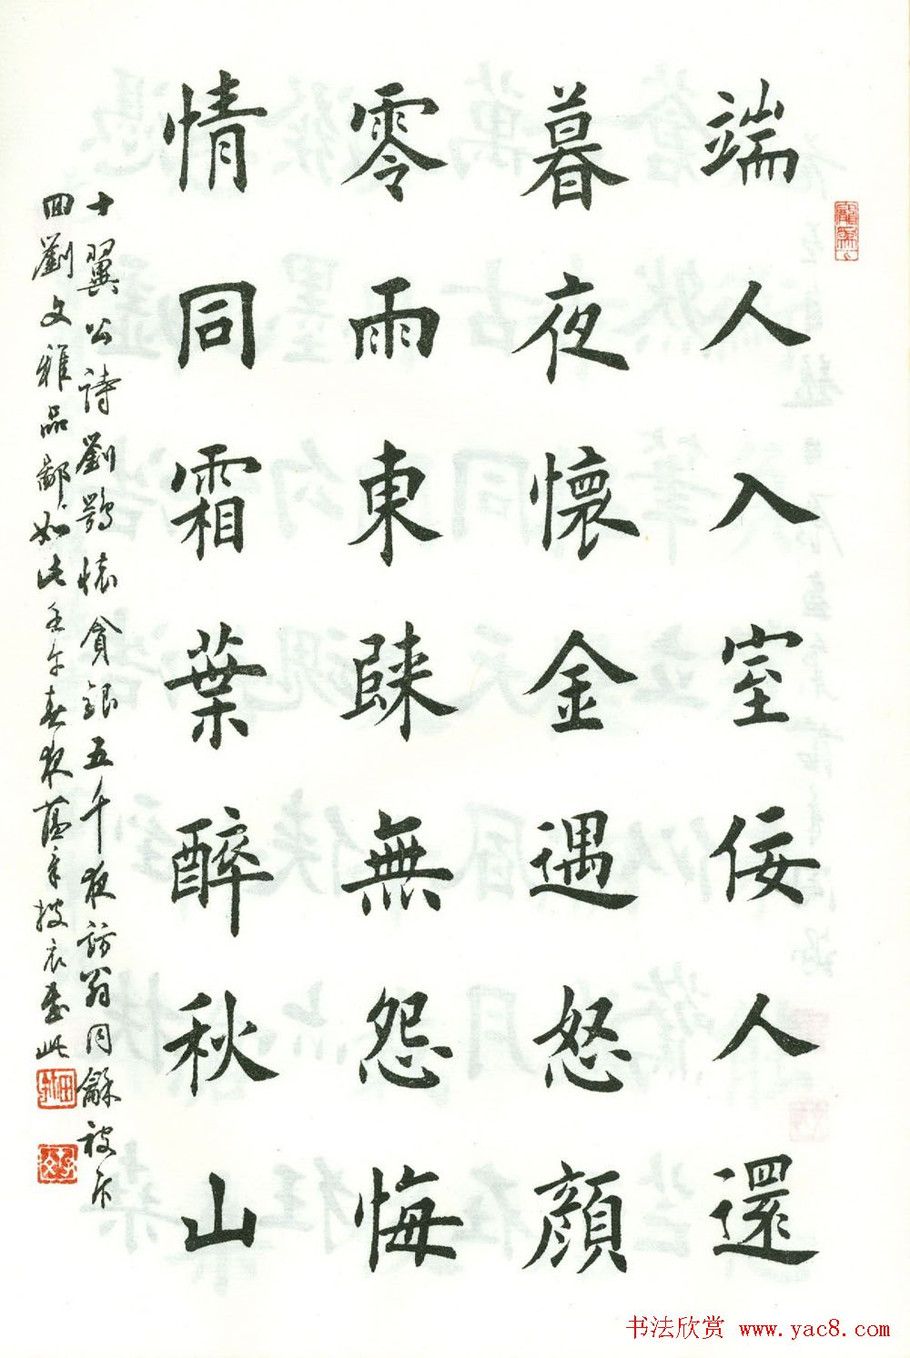 端人入室佞人還
暮夜懷金遇怒顏
零雨東歸無怨悔
情同霜葉醉秋山
十翼公詩劉鶚懷貪銀五千夜訪翁同龢被斥
回劉文雅品鄙如此壬午春夜披衣書此
书法欣赏 www.yac8.com